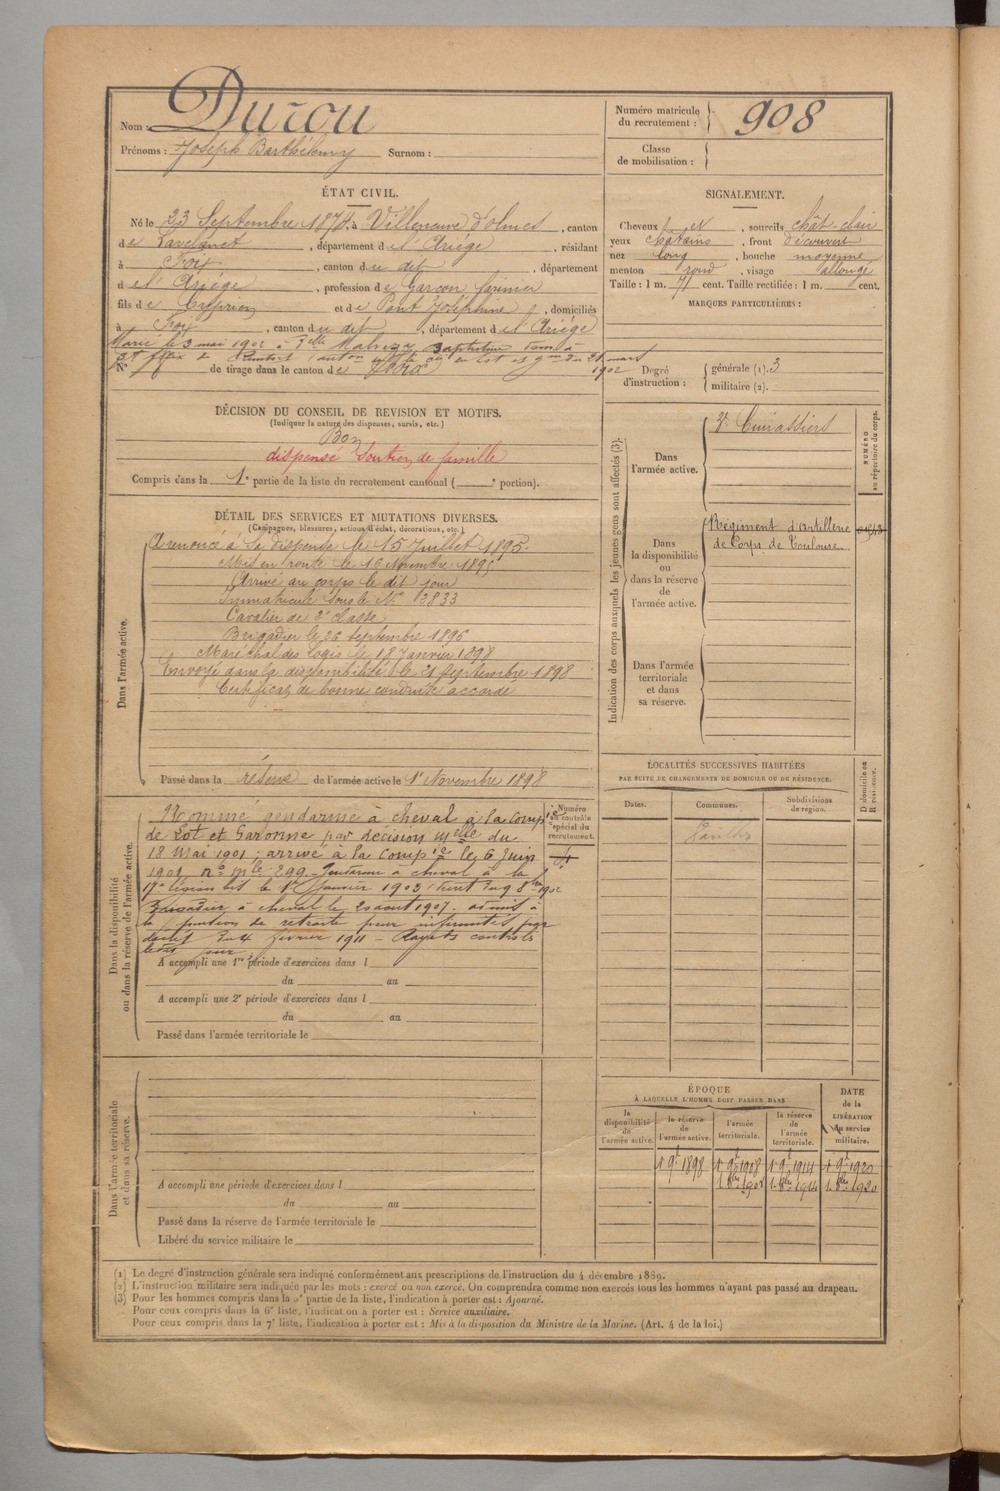 Nom : Durou
Prénoms : Joseph Barthélemy Surnom :
Numéro matricule du recrutement : 908
Classe de mobilisation :
ÉTAT CIVIL.
Né le 23 Septembre 1874, à Villeneuve d'olmes, canton
de Lavelanet, département de l'Ariége, résidant
à Foix, canton du dit, département
de l'Ariége, profession de Garçon
fils de Cyprien et de Pont Joséphine, domiciliés
à Foix, canton du dit, département de l'Ariége
Marié le 3 mai 1902 à Delle Malregy Baptistine
31 mars 1902
N° de tirage dans le canton de Foix
SIGNALEMENT.
Cheveux et, sourcils chât-clair
yeux châtains, front découvert
nez long, bouche moyenne
menton rond, visage allongé
Taille : 1 m. 71 cent. Taille rectifiée : 1 m. cent.
MARQUES PARTICULIÈRES :
Degré d'instruction : générale (1). 3
militaire (2).
DÉCISION DU CONSEIL DE REVISION ET MOTIFS.
(Indiquer la nature des dispenses, sursis, etc.)
Bon
dispensé Soutien de famille
Compris dans la 1e partie de la liste du recrutement cantonal ( e portion).
DÉTAIL DES SERVICES ET MUTATIONS DIVERSES.
(Campagnes, blessures, actions d'éclat, décorations, etc.)
Dans l'armée active.
A renoncé à la dispense le 15 Juillet 1895.
Mis en route le 16 Novembre 1895
Arrivé au corps le dit jour
Immatriculé sous le No 3833
Cavalier de 2e classe
Brigadier le 26 septembre 1896
Maréchal des logis le 18 Janvier 1898
Envoyé dans la disponibilité le 21 septembre 1898
Certificat de bonne conduite accordé
Passé dans la réserve de l'armée active le 1er Novembre 1898
Indication des corps auxquels les jeunes gens sont affectés (3).
NUMÉRO au répertoire du corps.
Dans l'armée active.
3e Cuirassiers
Dans la disponibilité ou dans la réserve de l'armée active.
Régiment d'Artillerie
de Corps de Toulouse
Dans l'armée territoriale et dans sa réserve.
Dans la disponibilité ou dans la réserve de l'armée active.
Numéro au contrôle spécial du recrutement.
Nommé gendarme à cheval à la compie
de Lot et Garonne par décision mlle du
18 Mai 1901 ; arrivé à la compie le 6 Juin
1901, no mle 299. Gendarme à cheval à la
17e légion bis le 1er Janvier 1903
Brigadier à cheval le 20 août 1907. admis à
la pension de retraite pour infirmités par
décret du 4 février 1911 - Rayé des contrôles
A accompli une 1re période d'exercices dans l
du au
A accompli une 2e période d'exercices dans l
du au
Passé dans l'armée territoriale le
LOCALITÉS SUCCESSIVES HABITÉES
PAR SUITE DE CHANGEMENTS DE DOMICILE OU DE RÉSIDENCE.
Dates. Communes. Subdivisions de région. D domicile ou R résidence.
Dans l'armée territoriale et dans sa réserve.
A accompli une période d'exercices dans l
du au
Passé dans la réserve de l'armée territoriale le
Libéré du service militaire le
ÉPOQUE
À LAQUELLE L'HOMME DOIT PASSER DANS
la disponibilité de l'armée active.
la réserve de l'armée active.
l'armée territoriale.
la réserve de l'armée territoriale.
DATE de la LIBÉRATION du service militaire.
1er 9bre 1898 1er 9bre 1908 1er 9bre 1914 1er 9bre 1920
(1) Le degré d'instruction générale sera indiqué conformément aux prescriptions de l'instruction du 4 décembre 1889.
(2) L'instruction militaire sera indiquée par les mots : exercé ou non exercé. On comprendra comme non exercés tous les hommes n'ayant pas passé au drapeau.
(3) Pour les hommes compris dans la 2e partie de la liste, l'indication à porter est : Ajourné.
Pour ceux compris dans la 6e liste, l'indication à porter est : Service auxiliaire.
Pour ceux compris dans la 7e liste, l'indication à porter est : Mis à la disposition du Ministre de la Marine. (Art. 4 de la loi.)